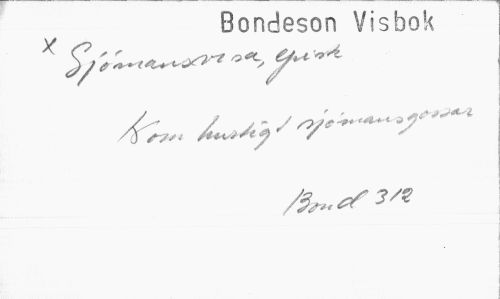 Bondeson Visbok
x Sjömansvisa, episk
Kom hurtigt sjömansgossar
Bond 312